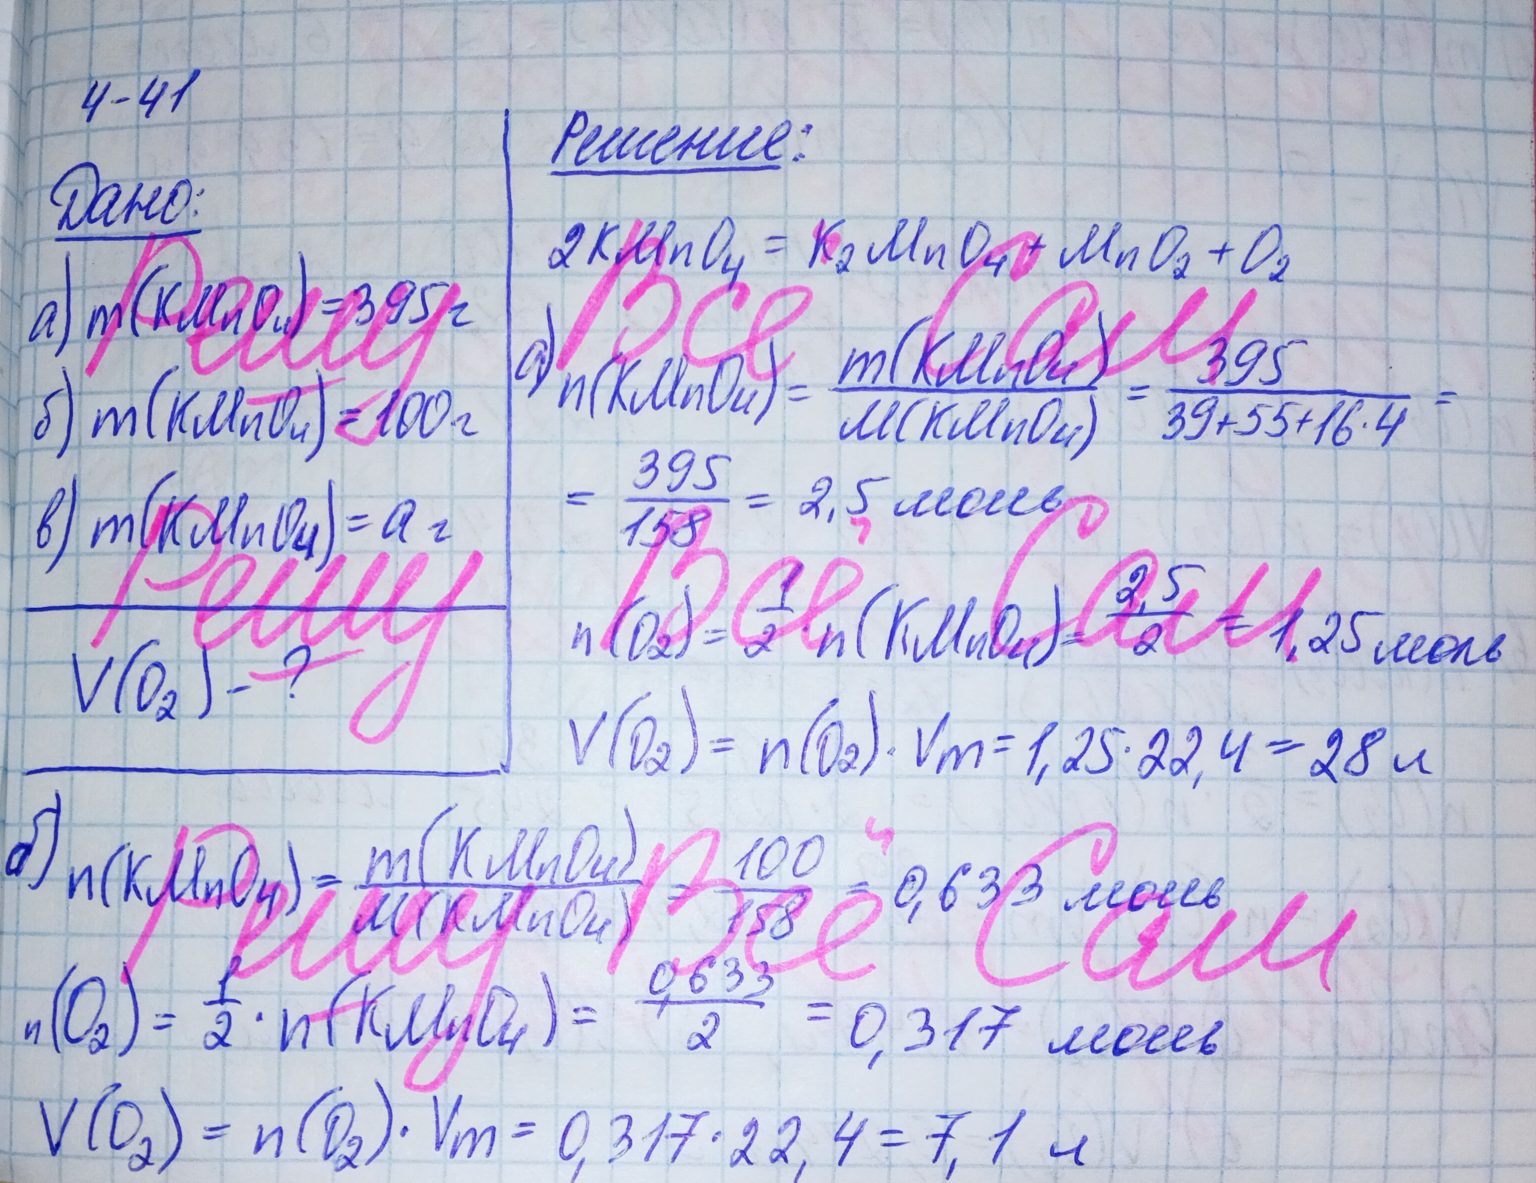 4-41
Дано:
а) m(KMnO₄)=395г
б) m(KMnO₄)=100г
в) m(KMnO₄)=a г
V(O₂)-?
Решение:
2KMnO₄ = K₂MnO₄ + MnO₂ + O₂
а) n(KMnO₄) = m(KMnO₄)/M(KMnO₄) = 395/(39+55+16·4) =
= 395/158 = 2,5 моль
n(O₂) = 1/2 · n(KMnO₄) = 2,5/2 = 1,25 моль
V(O₂) = n(O₂)·Vm = 1,25·22,4 = 28 л
б) n(KMnO₄) = m(KMnO₄)/M(KMnO₄) = 100/158 = 0,633 моль
n(O₂) = 1/2 · n(KMnO₄) = 0,633/2 = 0,317 моль
V(O₂) = n(O₂)·Vm = 0,317·22,4 = 7,1 л
Решу Всё Сам
Решу Всё Сам
Решу Всё Сам